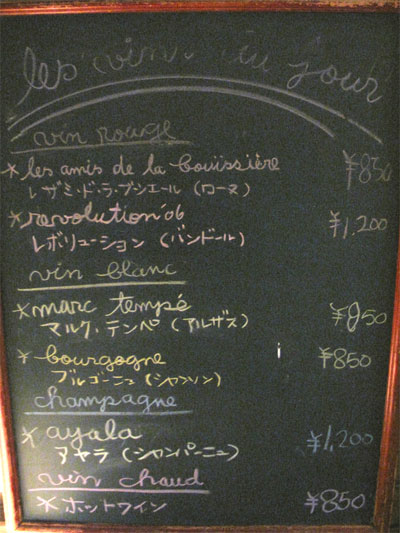 les vins du jour
vin rouge
* les amis de la bouïssière ¥850
レザミ・ド・ラ・ブシエール (ローヌ)
* revolution '06 ¥1,200
レボリューション (バンドール)
vin blanc
* marc tempé ¥850
マルク・テンペ (アルザス)
* bourgogne ¥850
ブルゴーニュ (シャンソン)
champagne
* ayala ¥1,200
アヤラ (シャンパーニュ)
vin chaud
* ホットワイン ¥850